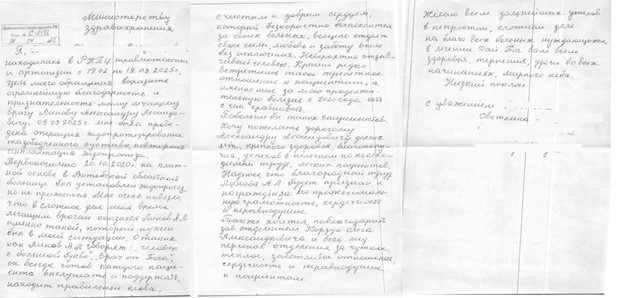 Министерству
здравоохранения
Я,
находилась в РНПЦ травматологии
и ортопедии с 19.02 по 19.03.2025г.
Цель моего обращения выразить
огромнейшую благодарность и
признательность моему лечащему
врачу Линову Александру Леонидо-
вичу. 05.03.2025г. мне была прове-
дена операция эндопротезирование
тазобедренного сустава, повторная
имплантация эндопротеза.
Первоначально 20.10.2020г. на плат-
ной основе в Витебской областной
больнице был установлен эндопротез,
но не прижился. Мне очень повезло,
что в сложное для меня время
лечащим врачом оказался Линов А.Л.
именно такой, который нужен
был в моей ситуации. О таких
как Линов А.Л. говорят: "человек
с большой буквы", "Врач от Бога",
он всегда готов каждого паци-
ента выслушать и поддержать,
находит правильные слова,
с чистым и добрым сердцем,
который бескорыстно беспокоится
за своих больных, всецело отдает
свои силы, любовь и заботу всем
без исключения. Невероятно отзыв-
чивый человек. Крайне редко
встретишь такое трепетное
отношение к пациентам, а
именно мне за мою продолжи-
тельную болезнь с 2020 года есть
с чем сравнивать.
Побольше бы таких специалистов.
Хочу пожелать дорогому
Александру Леонидовичу долгих
лет, крепкого здоровья, благополу-
чия, успехов в нелегком но необхо-
димом труде, легких пациентов.
Надеюсь что благородный труд
Линова А.Л. будет признан и
награжден за его профессиональ-
ную грамотность, сердечность
и неравнодушие.
Также хочется поблагодарить
зав. отделением Корзун Олега
Александровича и весь мед.
персонал отделения за чуткое,
теплое, заботливое отношение,
сердечность и неравнодушие
к пациентам.
Желаю всем дальнейших успехов
в непростом, сложном деле
на благо всех больных нуждающихся
в лечении. Дай Бог вам всем
здоровья, терпения, удачи во всех
начинаниях, мирного неба.
Низкий поклон.
с уважением
Светлана